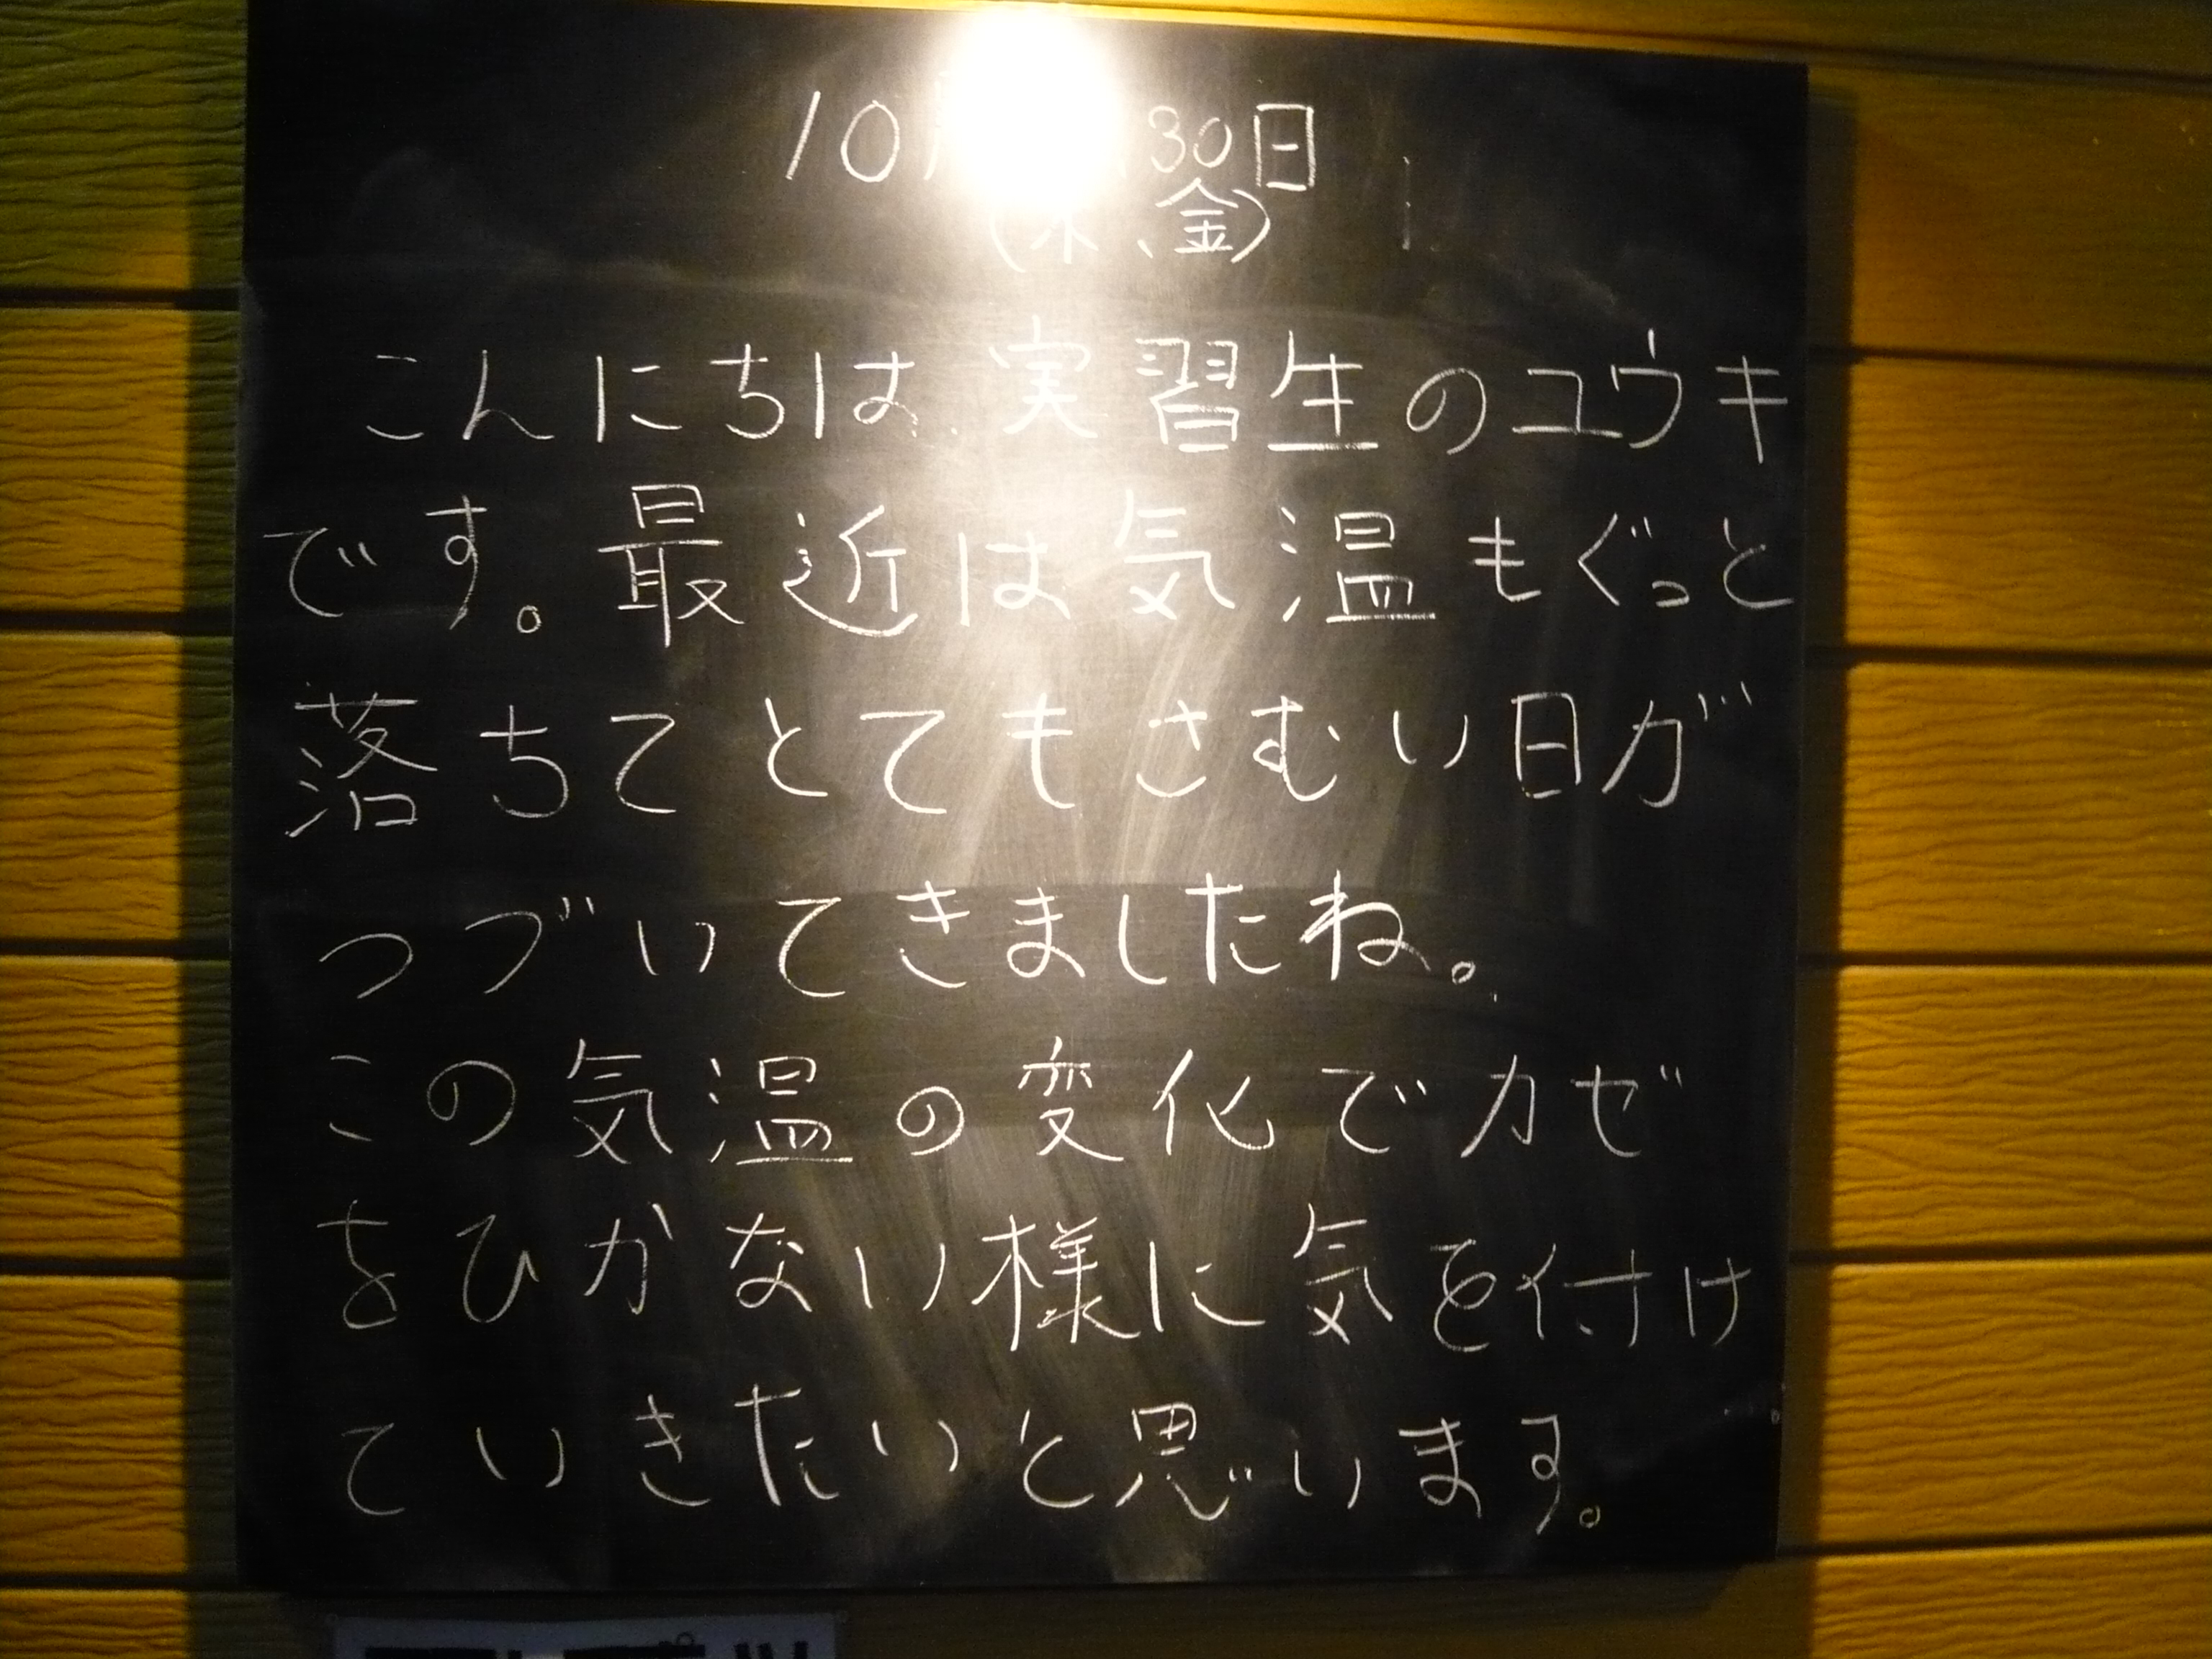 10月 30日
(木、金)
こんにちは、実習生のユウキ
です。最近は気温もぐっと
落ちてとてもさむい日が
つづいてきましたね。
この気温の変化でカゼ
をひかない様に気を付け
ていきたいと思います。